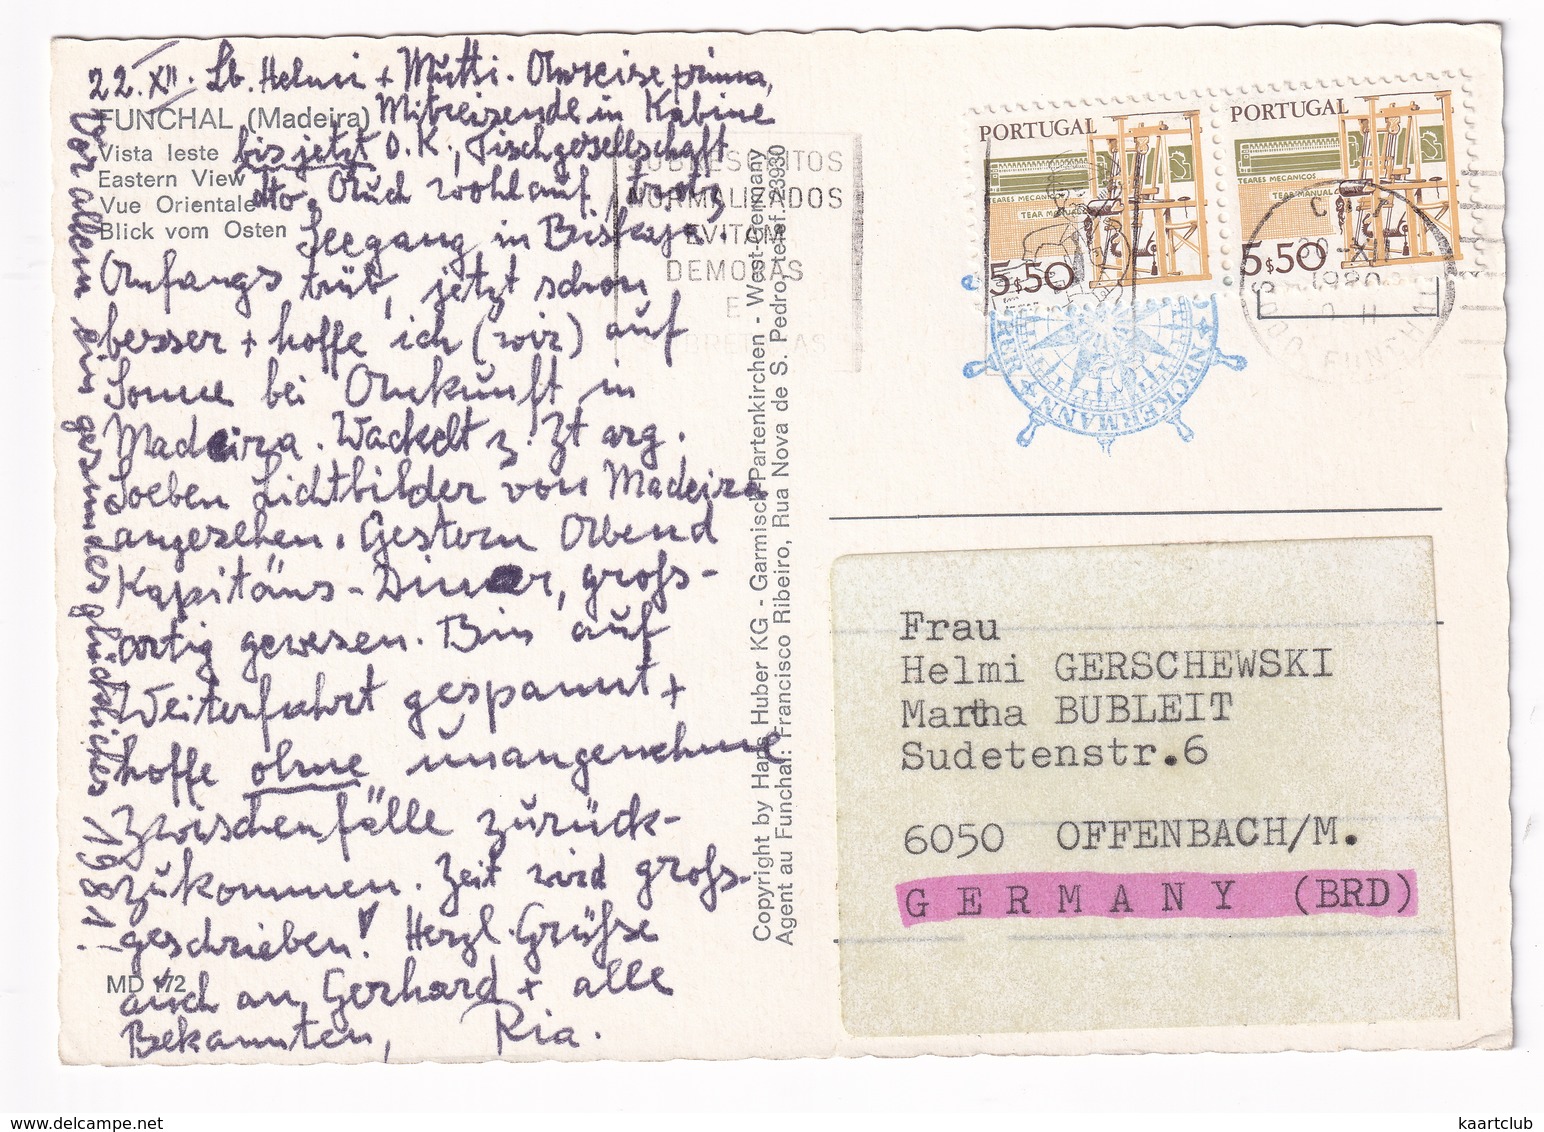 22.XII. Lb. Helmi + Mutti. Anreise prima,
Mitreisende in Kabine
bis jetzt O.K., Tischgesellschaft
dto. Auch wohlauf trotz
Seegang in Biskaja.
Anfangs trüb, jetzt schon
besser + hoffe ich (wir) auf
Sonne bei Ankunft in
Madeira. Wackelt z. Zt arg.
Soeben Lichtbilder von Madeira
angesehen. Gestern Abend
Kapitäns-Dinner, groß-
artig gewesen. Bin auf
Weiterfahrt gespannt +
hoffe ohne unangenehme
Zwischenfälle zurück-
zukommen. Zeit wird groß-
geschrieben! Herzl. Grüße
auch an Gerhard + alle
Bekannten, Ria.
Vor allem ein gesundes glückliches 1981!
FUNCHAL (Madeira)
Vista leste
Eastern View
Vue Orientale
Blick vom Osten
MD 172
Copyright by Hans Huber KG - Garmisch-Partenkirchen - West-Germany
Agent au Funchal: Francisco Ribeiro, Rua Nova de S. Pedro, telef. 23930
NORMALIZADOS
EVITAM
DEMORAS
E
PORTUGAL
TEARES MECANICOS
TEAR MANUAL
5$50
PORTUGAL
TEARES MECANICOS
TEAR MANUAL
5$50
1980
FUNCHAL
NECKERMANN
Frau
Helmi GERSCHEWSKI
Martha BUBLEIT
Sudetenstr.6
6050 OFFENBACH/M.
GERMANY (BRD)
kaartclub